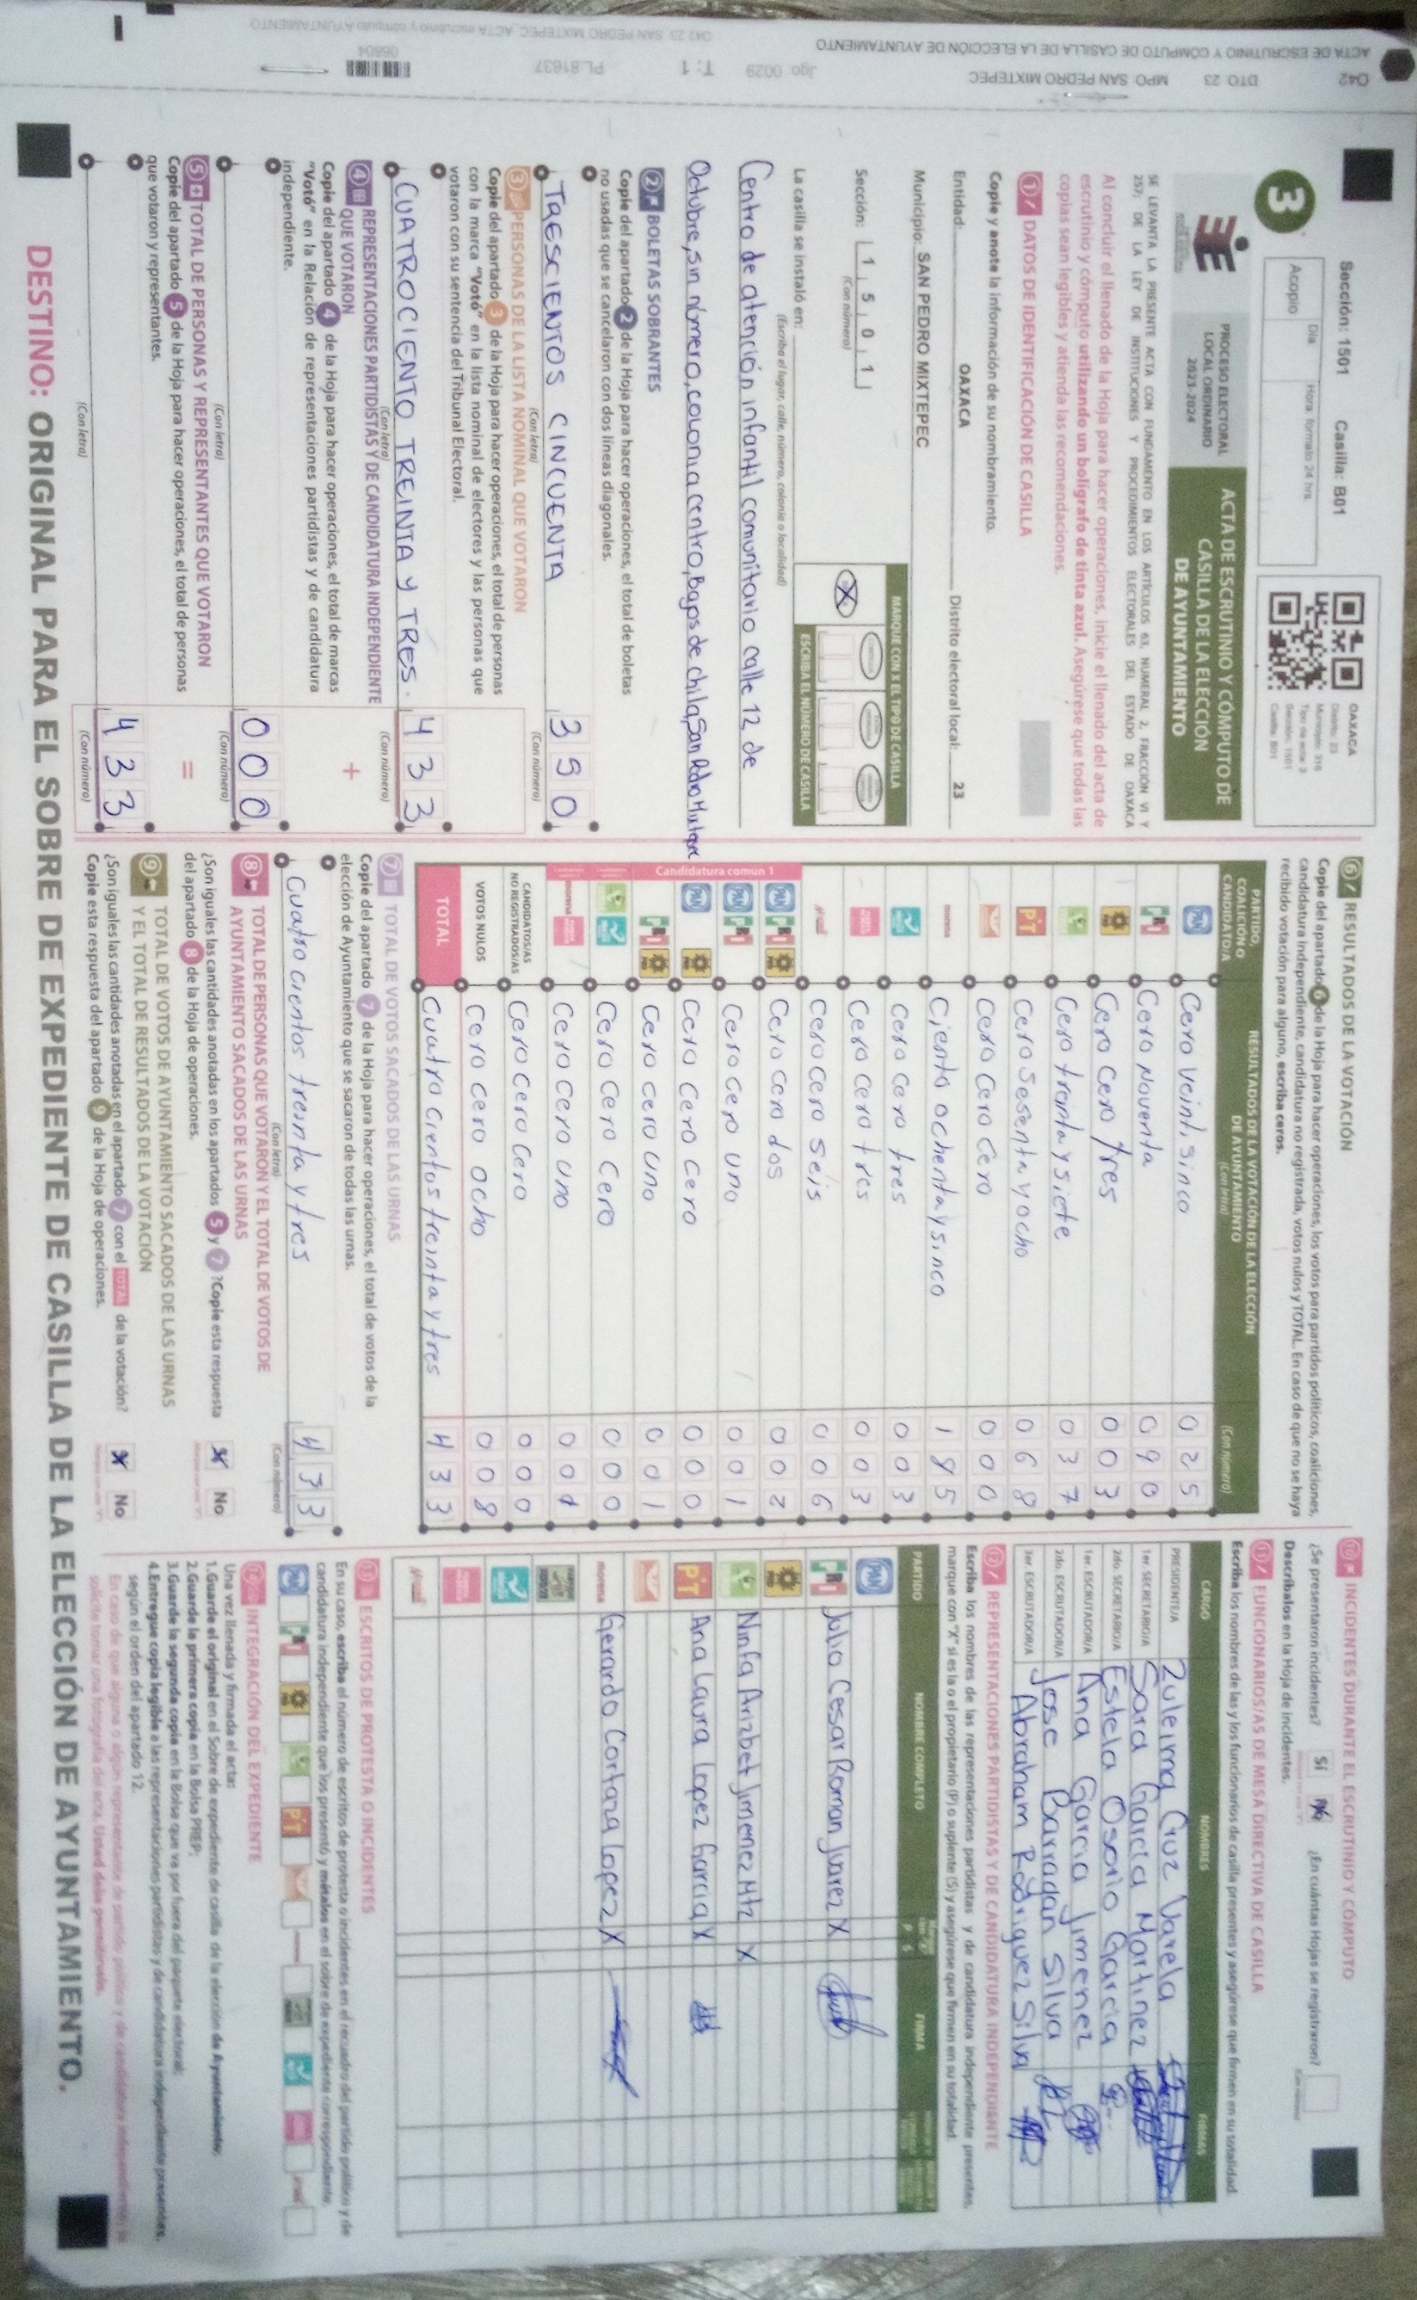 Sección: 1501 Casilla: B01
3
Acopio
Día
Hora: formato 24 hrs.
OAXACA
Distrito: 23
Sección: 1501
Casilla: B01
PROCESO ELECTORAL
LOCAL ORDINARIO
2023-2024
ACTA DE ESCRUTINIO Y CÓMPUTO DE
CASILLA DE LA ELECCIÓN
DE AYUNTAMIENTO
SE LEVANTA LA PRESENTE ACTA CON FUNDAMENTO EN LOS ARTÍCULOS 63, NUMERAL 2, FRACCIÓN VI Y
257; DE LA LEY DE INSTITUCIONES Y PROCEDIMIENTOS ELECTORALES DEL ESTADO DE OAXACA
Al concluir el llenado de la Hoja para hacer operaciones, inicie el llenado del acta de
escrutinio y cómputo utilizando un bolígrafo de tinta azul. Asegúrese que todas las
copias sean legibles y atienda las recomendaciones.
1 DATOS DE IDENTIFICACIÓN DE CASILLA
Copie y anote la información de su nombramiento.
Entidad: OAXACA Distrito electoral local: 23
Municipio: SAN PEDRO MIXTEPEC
Sección: 1 5 0 1
(Con número)
MARQUE CON X EL TIPO DE CASILLA
X
ESCRIBA EL NÚMERO DE CASILLA
La casilla se instaló en:
(Escriba el lugar, calle, número, colonia o localidad)
Centro de atención infantil comunitario calle 12 de
Octubre, sin número, colonia centro, Bajos de chila, San Pedro
2 BOLETAS SOBRANTES
Copie del apartado 2 de la Hoja para hacer operaciones, el total de boletas
no usadas que se cancelaron con dos líneas diagonales.
TRESCIENTOS CINCUENTA 3 5 0
(Con letra) (Con número)
3 PERSONAS DE LA LISTA NOMINAL QUE VOTARON
Copie del apartado 3 de la Hoja para hacer operaciones, el total de personas
con la marca "Votó" en la lista nominal de electores y las personas que
votaron con su sentencia del Tribunal Electoral.
CUATROCIENTO TREINTA Y TRES. 4 3 3
(Con letra) (Con número)
4 REPRESENTACIONES PARTIDISTAS Y DE CANDIDATURA INDEPENDIENTE
QUE VOTARON
+
Copie del apartado 4 de la Hoja para hacer operaciones, el total de marcas
"Votó" en la Relación de representaciones partidistas y de candidatura
independiente.
0 0 0
(Con letra) (Con número)
5 TOTAL DE PERSONAS Y REPRESENTANTES QUE VOTARON
=
Copie del apartado 5 de la Hoja para hacer operaciones, el total de personas
que votaron y representantes.
4 3 3
(Con letra) (Con número)
6 RESULTADOS DE LA VOTACIÓN
Copie del apartado 6 de la Hoja para hacer operaciones, los votos para partidos políticos, coaliciones,
candidatura independiente, candidatura no registrada, votos nulos y TOTAL. En caso de que no se haya
recibido votación para alguno, escriba ceros.
PARTIDO,
COALICIÓN O
CANDIDATO/A
RESULTADOS DE LA VOTACIÓN DE LA ELECCIÓN
DE AYUNTAMIENTO
(Con letra) (Con número)
PAN Cero veinti sinco 0 2 5
PRI Cero Noventa 0 9 0
PRD Cero cero tres 0 0 3
Cero treinta y siete 0 3 7
PT Cero sesenta y ocho 0 6 8
Cero Cero Cero 0 0 0
morena Ciento ochenta y sinco 1 8 5
Cero cero tres 0 0 3
Cero cero tres 0 0 3
Cero cero seis 0 0 6
Candidatura común 1
PAN PRI PRD Cero cero dos 0 0 2
PAN PRI Cero cero uno 0 0 1
PAN PRD Cero cero cero 0 0 0
PRI PRD Cero cero uno 0 0 1
Cero Cero Cero 0 0 0
morena Cero cero uno 0 0 1
CANDIDATOS/AS
NO REGISTRADOS/AS Cero cero cero 0 0 0
VOTOS NULOS Cero cero ocho 0 0 8
TOTAL Cuatro cientos treinta y tres 4 3 3
7 TOTAL DE VOTOS SACADOS DE LAS URNAS
Copie del apartado 7 de la Hoja para hacer operaciones, el total de votos de la
elección de Ayuntamiento que se sacaron de todas las urnas.
Cuatro cientos treinta y tres 4 3 3
(Con letra) (Con número)
8 TOTAL DE PERSONAS QUE VOTARON Y EL TOTAL DE VOTOS DE
AYUNTAMIENTO SACADOS DE LAS URNAS
¿Son iguales las cantidades anotadas en los apartados 5 y 7? Copie esta respuesta
del apartado 8 de la Hoja de operaciones.
X No
9 TOTAL DE VOTOS DE AYUNTAMIENTO SACADOS DE LAS URNAS
Y EL TOTAL DE RESULTADOS DE LA VOTACIÓN
¿Son iguales las cantidades anotadas en el apartado 7 con el TOTAL de la votación?
Copie esta respuesta del apartado 9 de la Hoja de operaciones.
X No
10 INCIDENTES DURANTE EL ESCRUTINIO Y CÓMPUTO
¿Se presentaron incidentes? Sí No ¿En cuántas Hojas se registraron?
Descríbalos en la Hoja de incidentes.
11 FUNCIONARIOS/AS DE MESA DIRECTIVA DE CASILLA
Escriba los nombres de las y los funcionarios de casilla presentes y asegúrese que firmen en su totalidad.
CARGO NOMBRES FIRMAS
PRESIDENTE/A Zuleima Cruz Varela
1er. SECRETARIO/A Sara Garcia Martinez
2do. SECRETARIO/A Estela Osorio Garcia
1er. ESCRUTADOR/A Ana Garcia Jimenez
2do. ESCRUTADOR/A Jose Barragan Silva
3er. ESCRUTADOR/A Abraham Rodriguez Silva
12 REPRESENTACIONES PARTIDISTAS Y DE CANDIDATURA INDEPENDIENTE
Escriba los nombres de las representaciones partidistas y de candidatura independiente presentes,
marque con "X" si es la o el propietario (P) o suplente (S) y asegúrese que firmen en su totalidad.
PARTIDO NOMBRE COMPLETO P S FIRMA
PAN
PRI Julio Cesar Roman Juarez X
PRD
Ninfa Arizbet Jimenez Htz X
PT Ana Laura Lopez Garcia X
morena Gerardo Cortaza Lopez X
13 ESCRITOS DE PROTESTA O INCIDENTES
En su caso, escriba el número de escritos de protesta o incidentes en el recuadro del partido político y de
candidatura independiente que los presentó y métalos en el sobre de expediente correspondiente.
PAN PRI PRD PT
14 INTEGRACIÓN DEL EXPEDIENTE
Una vez llenada y firmada el acta:
1. Guarde el original en el Sobre de expediente de casilla de la elección de Ayuntamiento;
2. Guarde la primera copia en la Bolsa PREP;
3. Guarde la segunda copia en la Bolsa que va por fuera del paquete electoral;
4. Entregue copia legible a las representaciones partidistas y de candidatura independiente presentes,
según el orden del apartado 12.
DESTINO: ORIGINAL PARA EL SOBRE DE EXPEDIENTE DE CASILLA DE LA ELECCIÓN DE AYUNTAMIENTO.
042 DTO 23 MPO SAN PEDRO MIXTEPEC Jgo. 0029 T: 1 PL.81637
ACTA DE ESCRUTINIO Y CÓMPUTO DE CASILLA DE LA ELECCIÓN DE AYUNTAMIENTO
042 23 SAN PEDRO MIXTEPEC ACTA escrutinio y cómputo AYUNTAMIENTO